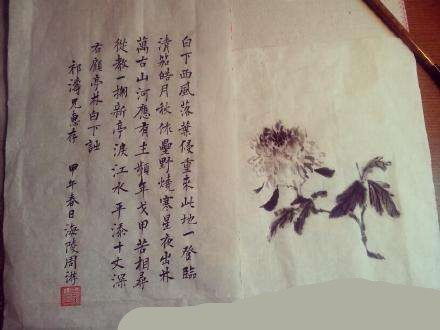 白下西風落葉侵重來此地一登臨
清笳皓月秋依壘野燒寒星夜出林
萬古山河應有主頻年戈甲苦相尋
從教一掬新亭淚江水平添十丈深
右顧亭林白下詩
祁濤兄惠存 甲午春日海陵周